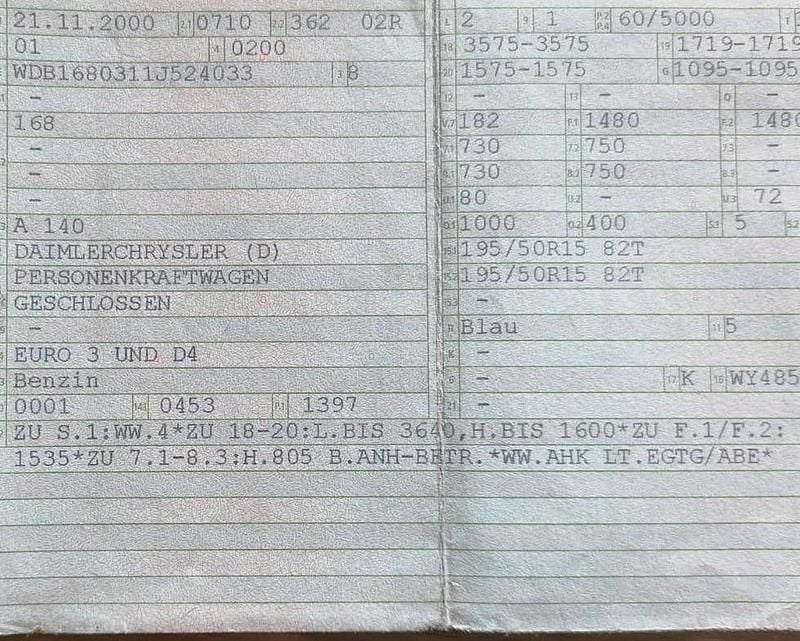 21.11.2000 2.1 0710 2.2 362 02R L 2 9 1 P.2 P.4 60/5000 T
01 4 0200 18 3575-3575 19 1719-1719
WDB1680311J524033 3 8 20 1575-1575 G 1095-1095
- 12 - 13 - Q -
168 V.7 182 F.1 1480 F.2 1480
- 7.1 730 7.2 750 7.3 -
- 8.1 730 8.2 750 8.3 -
- U.1 80 U.2 - U.3 72
A 140 O.1 1000 O.2 400 S.1 5 S.2
DAIMLERCHRYSLER (D) 15.1 195/50R15 82T
PERSONENKRAFTWAGEN 15.2 195/50R15 82T
GESCHLOSSEN 15.3 -
- R Blau 11 5
EURO 3 UND D4 K -
Benzin 6 - 17 K 16 WY485
0001 14.1 0453 P.1 1397 21 -
ZU S.1:WW.4*ZU 18-20:L.BIS 3640,H.BIS 1600*ZU F.1/F.2:
1535*ZU 7.1-8.3:H.805 B.ANH-BETR.*WW.AHK LT.EGTG/ABE*